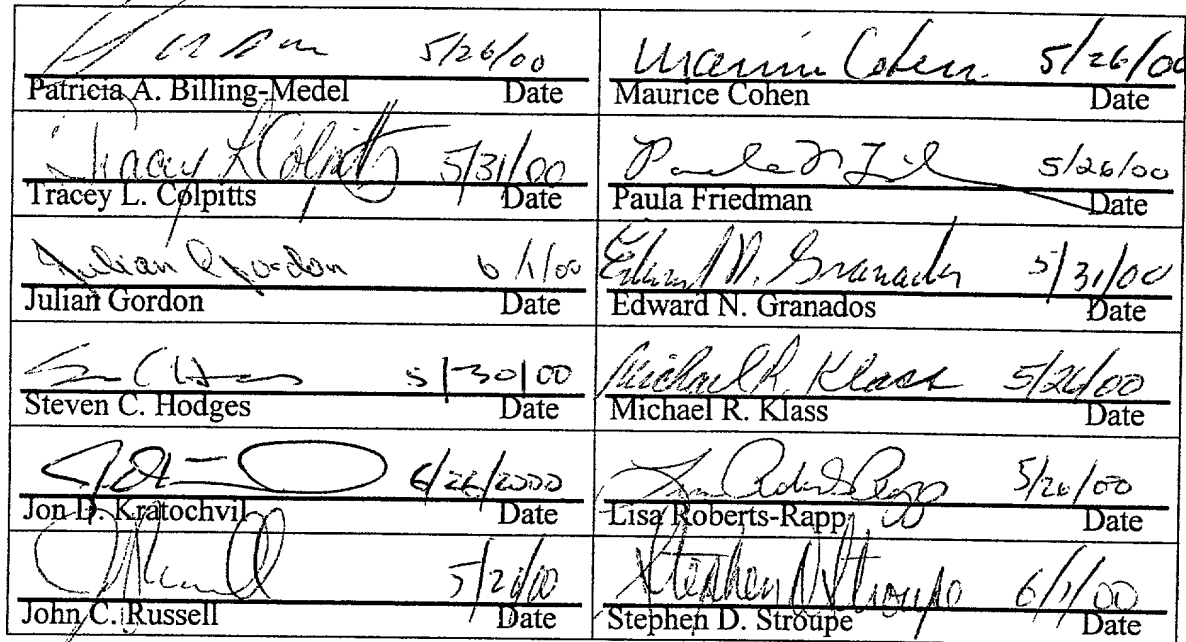 5/26/00
Patricia A. Billing-Medel Date
Cohen 5/26/00
Maurice Cohen Date
Tracey L Colpitts 5/31/00
Tracey L. Colpitts Date
5/26/00
Paula Friedman Date
Julian Gordon 6/1/00
Julian Gordon Date
Edward N. Granados 5/31/00
Edward N. Granados Date
5/30/00
Steven C. Hodges Date
Michael R. Klass 5/26/00
Michael R. Klass Date
6/26/2000
Jon D. Kratochvil Date
5/26/00
Lisa Roberts-Rapp Date
John C. Russell Date
Stephen D Stroupe 6/1/00
Stephen D. Stroupe Date